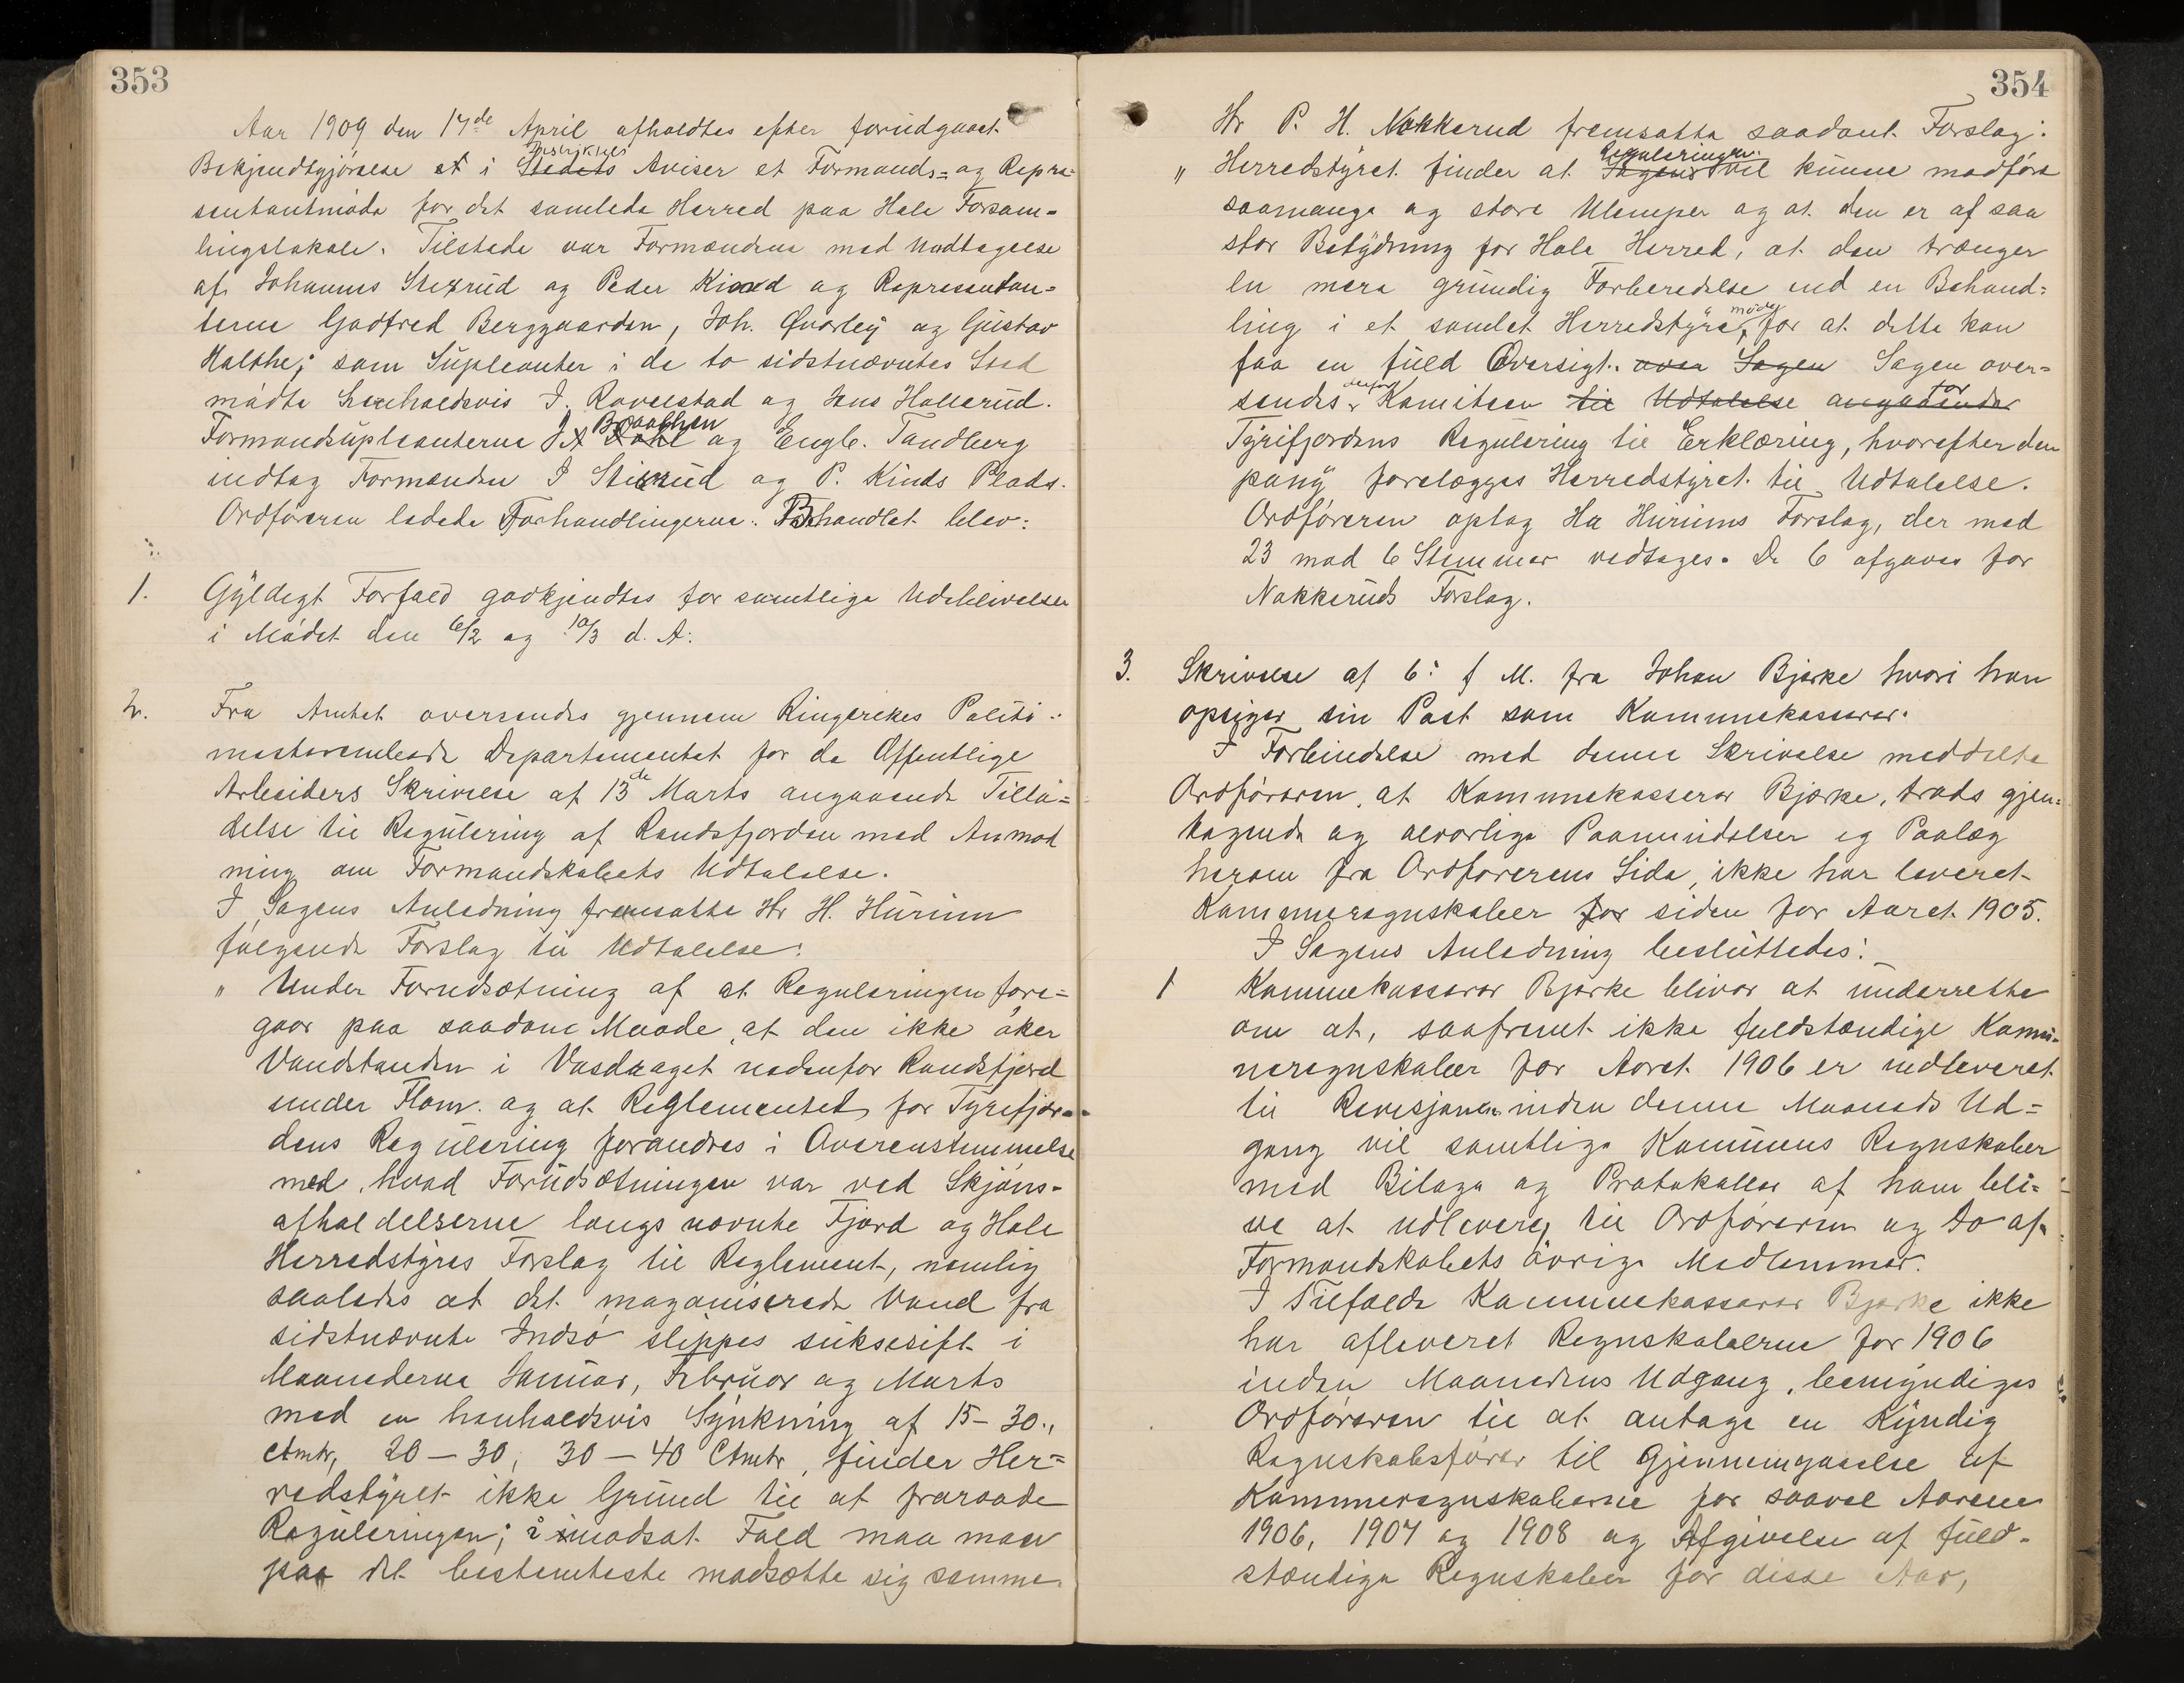 353
Aar 1909 den 17de April afholdtes efter forudgaaet
Bekjendtgjørelse et i Stedets Distriktets Aviser et Formands= og Repræ-
sentantmøde for det samlede Herred paa Hole Forsam-
lingslokale. Tilstede var Formændene med Undtagelse
af Johannes Stixrud og Peder Kind og Repræsentan=
terne Godfred Berggaarden, Joh. Qvarley og Gustav
Malthe; som Supleanter i de to sidstnævntes Sted
mødte henholdsvis J. Ravelstad og Jens Hollerud.
Formandsupleanterne Braathen og Engb. Tandberg
indtog Formænden J Stixrud og P. Kinds Plads.
Ordføreren ledede Forhandlingerne. Behandlet blev:
1. Gyldigt Forfald godkjendtes for samtlige Udeblivelser
i Mødet den 6/2 og 10/3 d. A.
2. Fra Amtet oversendes gjennem Ringerikes Politi-
mesterembede Departementet for de Offentlige
Arbeiders Skrivelse af 13de Marts angaaende Tilla=
delse til Regulering af Randsfjorden med Anmod
ning om Formandskabets Udtalelse.
I Sagens Anledning fremsatte Hr H. Hurum
følgende Forslag til Udtalelse:
" Under Forudsætning af at Reguleringen fore=
gaar paa saadane Maade, at den ikke øker
Vandstanden i Vasdraget nedenfor Randsfjord
under Flom og at Reglementet for Tyrifjor-
dens Regulering forandres i Overenstemmelse
med, hvad Forudsætningen var ved Skjøns-
afholdelserne langs nævnte Fjord og Hole
Herredstyres Forslag til Reglement, nemlig
saaledes at det magaziserede Vand fra
sidstnævnte Indsø slippes suksesift i
Maanederne Januar, Februar og Marts
med en henholdsvis Synkning af 15-30,
ctmtr, 20-30, 30-40 Ctmtr, finder Her=
redstyret ikke Grund til at fraraade
Reguleringen; i imodsat Fald maa man
paa det bestemteste modsætte sig samme.
354
Hr P. H. Nakkerud fremsatte saadant Forslag:
" Herredstyret finder at Sagens Reguleringen vil kunne medføre
saamange og store Ulemper og at den er af saa
stor Betydning for Hole Herred, at den trænger
en mere grundig Forberedelse end en Behand=
ling i et samlet Herredstyremøde, for at dette kan
faa en fuld Oversigt. over Sagen Sagen over=
sendes derfor Komiteen til Udtalelse angaaende for
Tyrifjordens Regulering til Erklæring, hvorefter den
paany forelægges Herredstyret til Udtalelse.
Ordføreren optog Hr Hurums Forslag, der med
23 mod 6 Stemmer vedtages. De 6 afgaves for
Nakkeruds Forslag.
3. Skrivelse af 6. f M. fra Johan Bjørke hvori han
opsiger sin Post som Kommunekasserer.
I Forbindelse med denne Skrivelse meddelte
Ordføreren, at Kommunekasserer Bjørke, trods gjen-
tagende og alvorlige Paamindelser og Paalæg
herom fra Ordførerens Side, ikke har leveret
Kommuneregnskaber for siden for Aaret 1905.
I Sagens Anledning besluttedes:
1 Kommunekasserer Bjørke bliver at underrette
om at, saafremt ikke fuldstændige Kommu-
neregnskaber for Aaret 1906 er indleveret
til Revisjonen inden denne Maaneds Ud=
gang vil samtlige Kommunens Regnskaber
med Bilage og Protokoller af ham bli=
ve at udlevere til Ordføreren og to af
Formandskabets øvrige Medlemmer.
I Tilfælde Kommunekasserer Bjørke ikke
har afleveret Regnskaberne for 1906
inden Maanedens Udgang, bemyndiges
Ordføreren til at antage en kyndig
Regnskabsfører til Gjennemgaaelse af
Kommuneregnskaberne for saavel Aarene
1906, 1907 og 1908 og Afgivelse af fuld-
stændige Regnskaber for disse Aar,